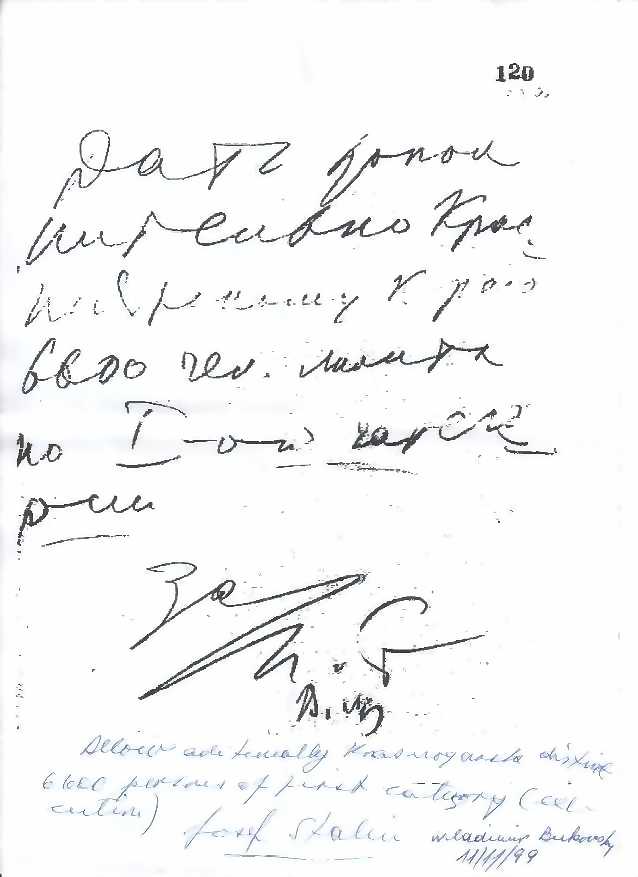 120
Дать допол
нительно Крас
ноярскому краю
6600 чел. лимита
по I-ой катего
рии
За
Allow aditionally Krasnoyarsk district
6600 persons of first category (exe-
cution) Josef Stalin Wladimir Bukovsky
11/11/99